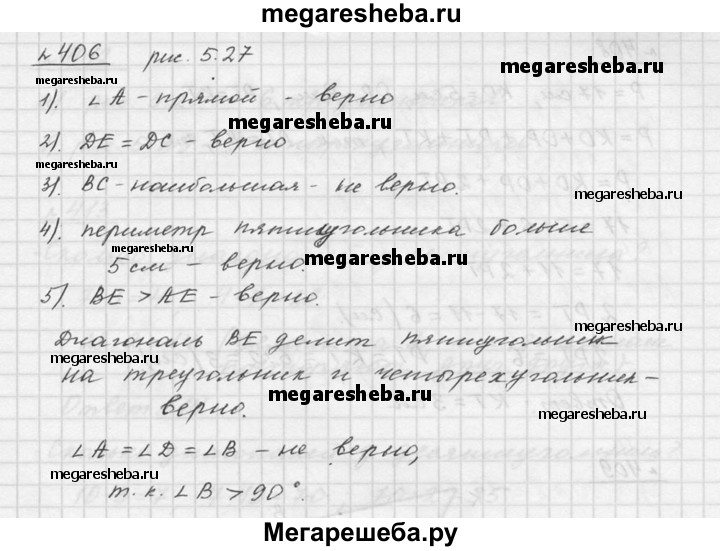 megaresheba.ru
№ 406 рис. 5.27
megaresheba.ru
megaresheba.ru
1). ∠A - прямой - верно
megaresheba.ru
2). DE = DC - верно
3). BC - наибольшая - не верно.
megaresheba.ru
4). периметр пятиугольника больше
megaresheba.ru
5 см - верно.
megaresheba.ru
5). BE > AE - верно.
megaresheba.ru
Диагональ BE делит пятиугольник
megaresheba.ru
на треугольник и четырехугольник -
megaresheba.ru
верно.
megaresheba.ru
∠A = ∠D = ∠B - не верно,
megaresheba.ru
т.к. ∠B > 90°.
Мегарешеба.ру